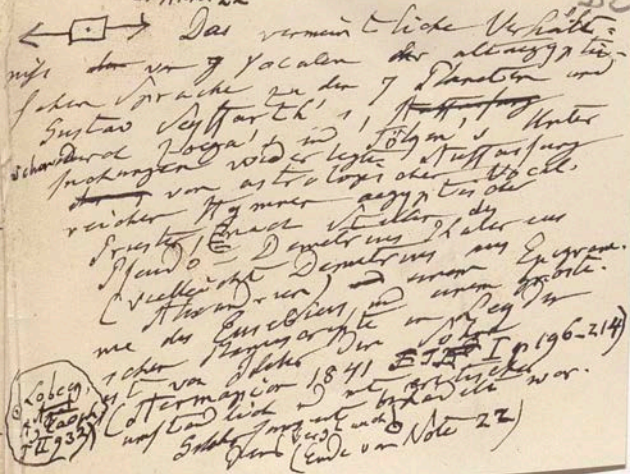 Das vermeintliche Verhält-
niß der 7 Vocalen der altaegypti-
schen Sprache zu den 7 Planeten und
Gustav Seyffarth's, Auffassung
schon durch Zoega's und Tölken's Unter
suchungen widerlegte Auffassung
von astrologischer Vocal-
reicher Hymnen aegyptischer
Priester, nach Stellen des
Pseudo-Demetrius Phalereus
(vielleicht Demetrius aus
Alexandrien) einem Epigram-
me des Eusebius und einem gnosti-
schen Manuscripte in Leyden
ist von Ideler dem Sohne
(Hermapion 1841 I p 196-214)
umständlich und mit kritischer
behandelt wor.
den (Ende von Note 22)
Lobeck
T II 932